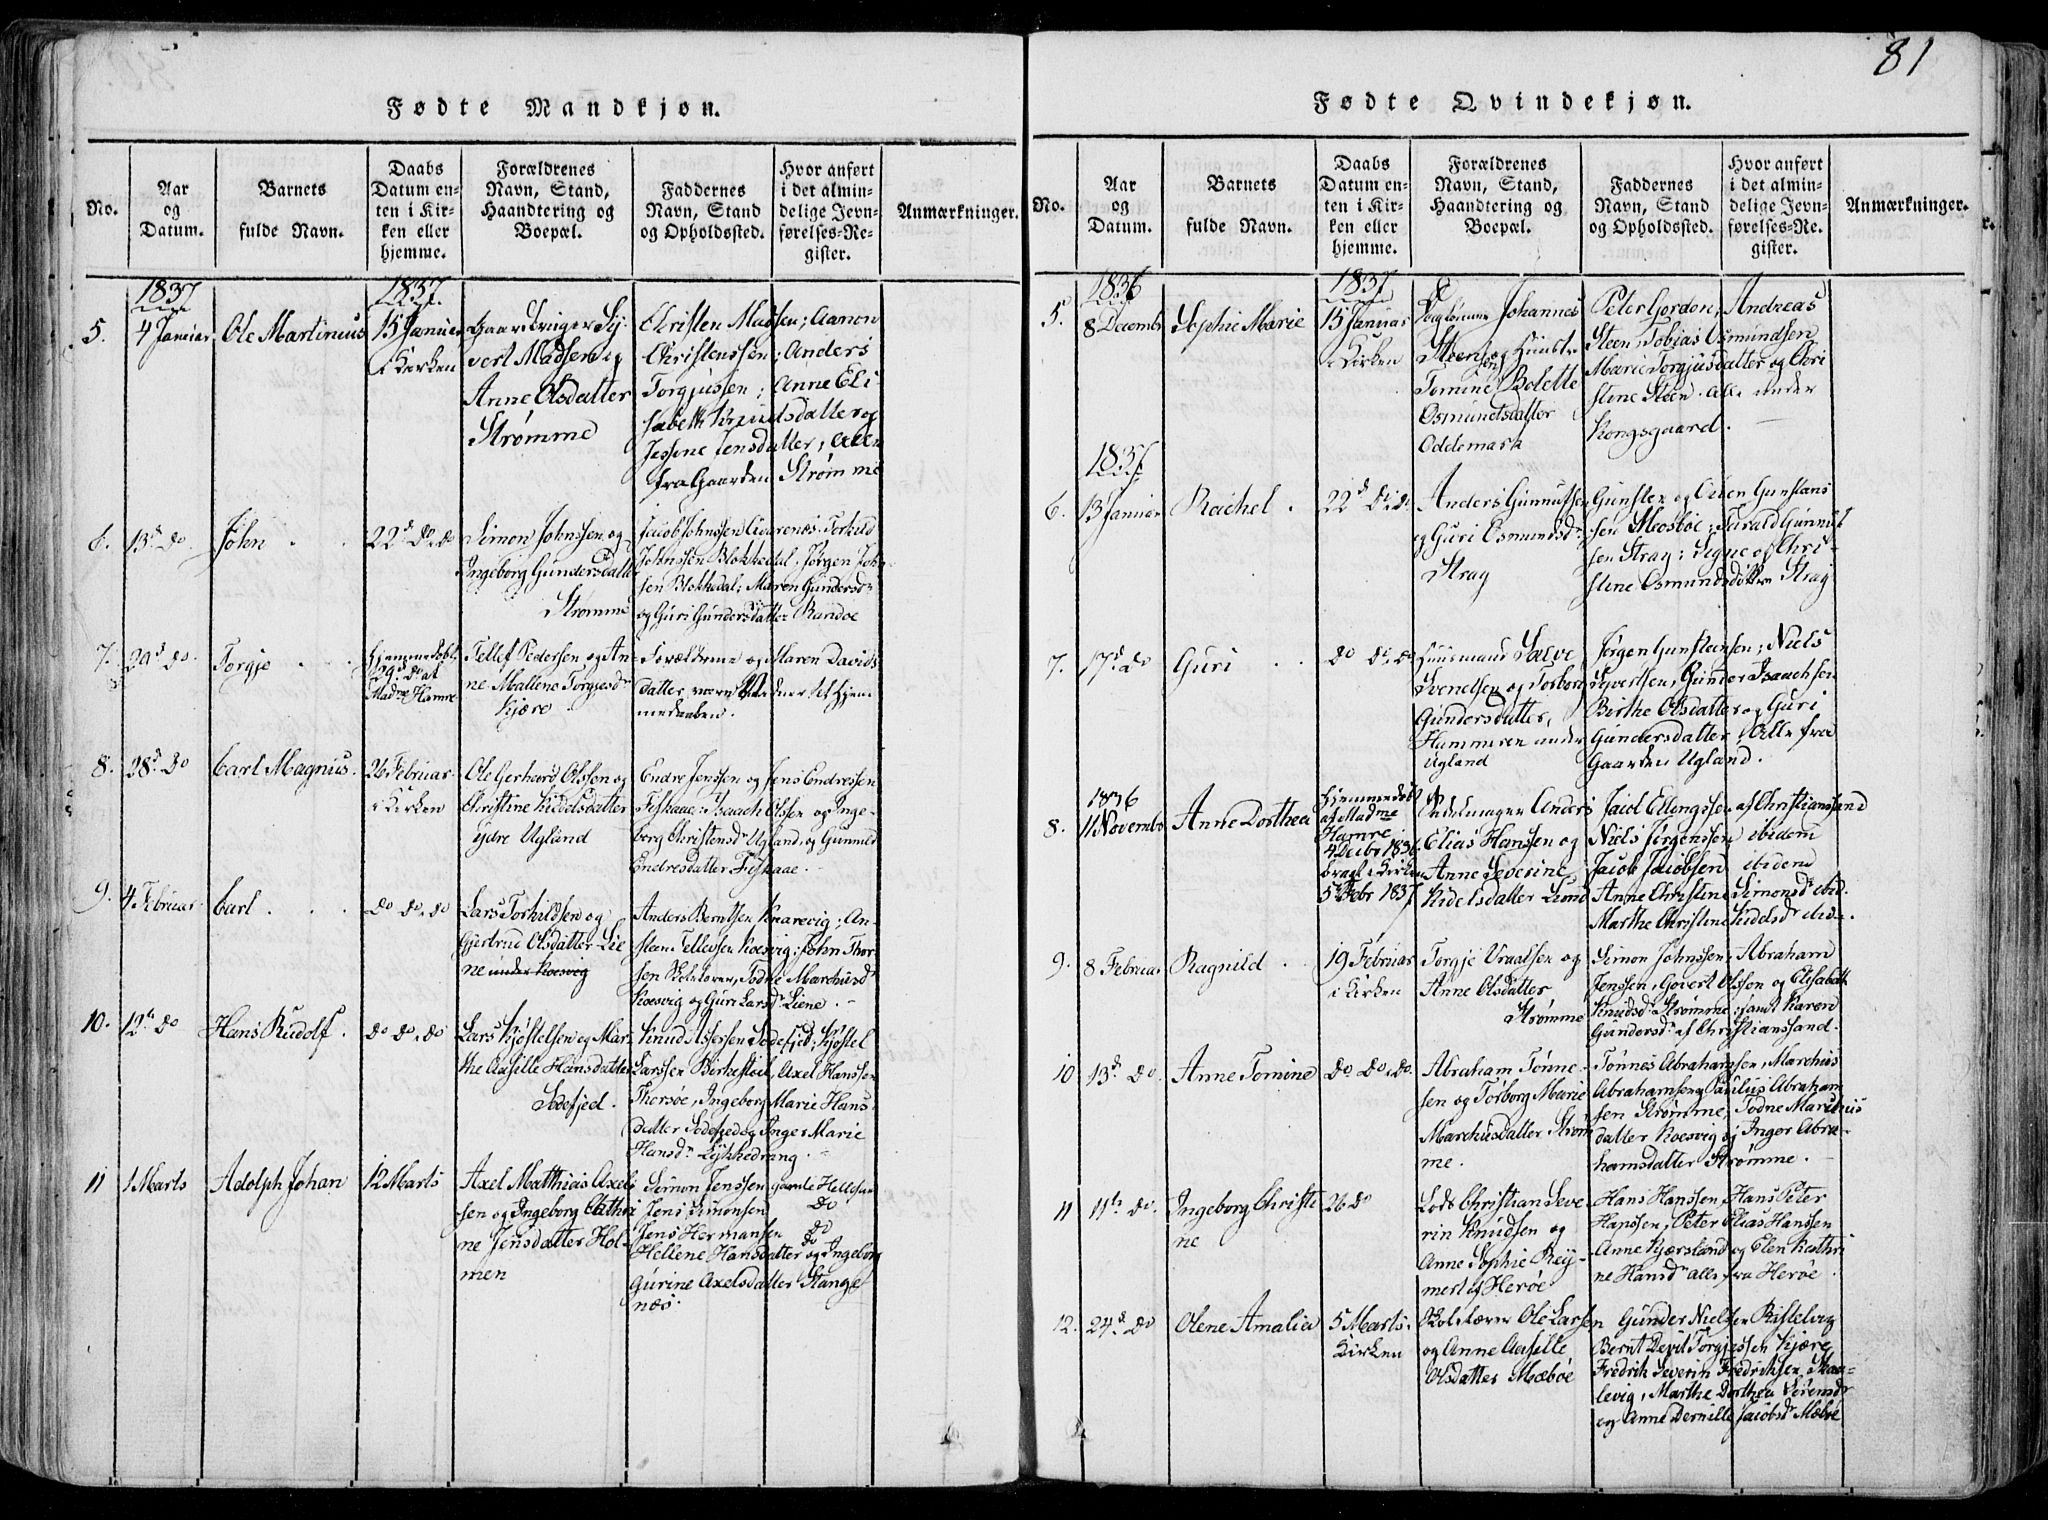 81
Fødte Mandkjøn.
No.
Aar og Datum.
Barnets fulde Navn.
Daabs Datum enten i Kirken eller hjemme.
Forældrenes Navn, Stand, Haandtering og Boepæl.
Faddernes Navn, Stand og Opholdssted.
Hvor anført i det almindelige Jevnførelses-Register.
Anmærkninger.
1837
1837.
5.
4 Januar
Ole Martinius
15 Januar
i Kirken
Gaardbruger Sy-
vert Madsen og
Anne Olsdatter
Strømme
Christen Madsen; Aanon
Christenssen; Anders
Torgjussen; Anne Eli-
sabeth Knudsdatter og
Jessine Jensdatter, alle
fra Gaarden Strømme
6.
13d Do
John
22d Do Do
Simon Johnssen og
Ingeborg Gundersdatter
Strømme
Jacob Johnssen Aarenæs. Torkild
Johnssen Blokkedal, Jørgen John-
sen Blokkedal; Maren Gundersdr
og Guri Gundersdatter Randøe
7.
20d Do
Torgje
Hjemmedøbt
29d Do af
Madme Hamre
Tellef Pedersen og An-
ne Mallene Torgjesdr
Kjære
Forældrene og Maren Davids-
datter vare Vidner til Hjem-
medaaben.
8.
28d Do
Carl Magnus.
26 Februar
i Kirken
Ole Gerhard Olssen og
Christine Kiddelsdatter
ydre Ugland
Endre Jenssen og Jens Endressen
Fiskaae; Isaach Olssen og Inge-
borg Christensdr Ugland, og Gunnild
Endresdatter Fiskaae.
9.
4 Februar
Carl
Do Do Do
Lars Torkildsen og
Gjertrud Olsdatter Lie-
ne under Koesvig
Anders Berntsen Knarevig; An-
steen Tellevsen Koesvig; John Thor-
sen Skolelærer, Todne Marchusdr
Koesvig og Guri Larsdr Liene.
10.
12te Do
Hans Rudolf.
Do Do Do
Lars Kjøstelsen og Mar-
the Aasille Hansdatter
Sodefjed.
Knud Assersen Sodefjed; Kjøstel
Larssen Birkestøl, Axel Hanssen
Thorsøe, Ingeborg Marie Hans-
datter Sodefjed og Inger Marie
Hansdr Lykkedrang.
11
1 Marts
Adolph Johan
12 Marts
Axel Matthias Axel-
sen og Ingeborg Cathri-
ne Jensdatter Hol-
men
Simon Jenssen gamle Hellesund
Jens Simonsen Do
Jens Hermansen Do
Hellene Hansdatter Do og Ingeborg
Gurine Axelsdatter Stange-
næs.
Fødte Qvindekjøn.
No.
Aar og Datum.
Barnets fulde Navn.
Daabs Datum enten i Kirken eller hjemme.
Forældrenes Navn, Stand, Haandtering og Boepæl.
Faddernes Navn, Stand og Opholdssted.
Hvor anført i det almindelige Jevnførelses-Register.
Anmærkninger.
1836
1837
5.
8 Decembr
Sophie Marie
15 Januar
i Kirken
Johannes
Steen og Hustr
Tomine Bolette
Osmundsdatter
Oddemark
Peter Gordon, Andreas
Steen, Tobias Osmundsen
Marie Torgjusdatter og Chri-
stine Steen. Alle under
Kongsgaard.
1837
6.
13 Januar
Rachel.
22d Do Do
Anders Gunnufsen
og Guri Osmundsdr
Stray
Gunsten og Osben Gunstens-
sen Mosbøe; Tarald Gunnuf-
sen Stray; Signe og Chri-
stine Osmundsdøttre Stray
7.
17d Do
Guri
Do Do Do
Huusmand Salve
Svendsen og Torborg
Gundersdatter,
Hammeren under
Ugland
Jørgen Gunsteinsen; Niels
Syvertsen, Gunder Isaachsen
Birthe Olsdatter og Guri
Gundersdatter, Alle fra
Gaarden Ugland.
1836
8.
11 Novembr
Anne Dorthea
Hjemmedøbt
af Madme
Hamre
4 Decbr 1836.
bragt i Kirken
5te Febr 1837
Anders
Elias Hanssen og
Anne Severine
Kidelsdatter Lund
Jacob Ellingssen af Christianssand
Niels Jørgenssen ibidem
Jacob Jacobsen ibidem
Anne Christine Simonsdr ibid.
Marthe Christine Kidelsdr ibid.
9.
8 Februar
Ragnild
19 Februar
i Kirken
Torgje Vraalsen og
Anne Olsdatter
Strømme
Simon Johnssen, Abraham
Jenssen, Govert Olssen og Elisabeth
Knudsdr Strømme; samt Karen
Gundersdr af Christianssand.
10
13d Do.
Anne Tomine
Do Do Do.
Abraham Tønne-
sen og Torborg Marie
Marchusdatter Strøm-
me.
Tønnes Abrahamsen, Marchius
Abrahamsen og Paulus Abraham-
sen Strømme, Todne Marchus-
datter Koesvig og Inger Abra-
hamsdatter Strømme.
11
11te Do.
Ingeborg Christi-
ne
26 Do
Lods Christian Seve-
rin Knudsen og
Anne Sophie Rey-
mert af Herøe
Hans Hanssen, Hans Peter
Hanssen, Peter Elias Hanssen
Anne Kjærsland og Elen Kathri-
ne Hansdr alle fra Herøe
12.
24d Do
Olene Amalia
5 Marts.
Kirken
Skolelærer Ole Larsen
og Anne Aasille
Olsdatter Mæbøe
Gunder Nielsen Ristelvig
Bernt Devit Torgjussen Kjære
Fredrik Severin Fredriksen Skaa-
levig, Marthe Dorthea Sørensdr
og Anne Pernille Jacobsdr Mæbøe